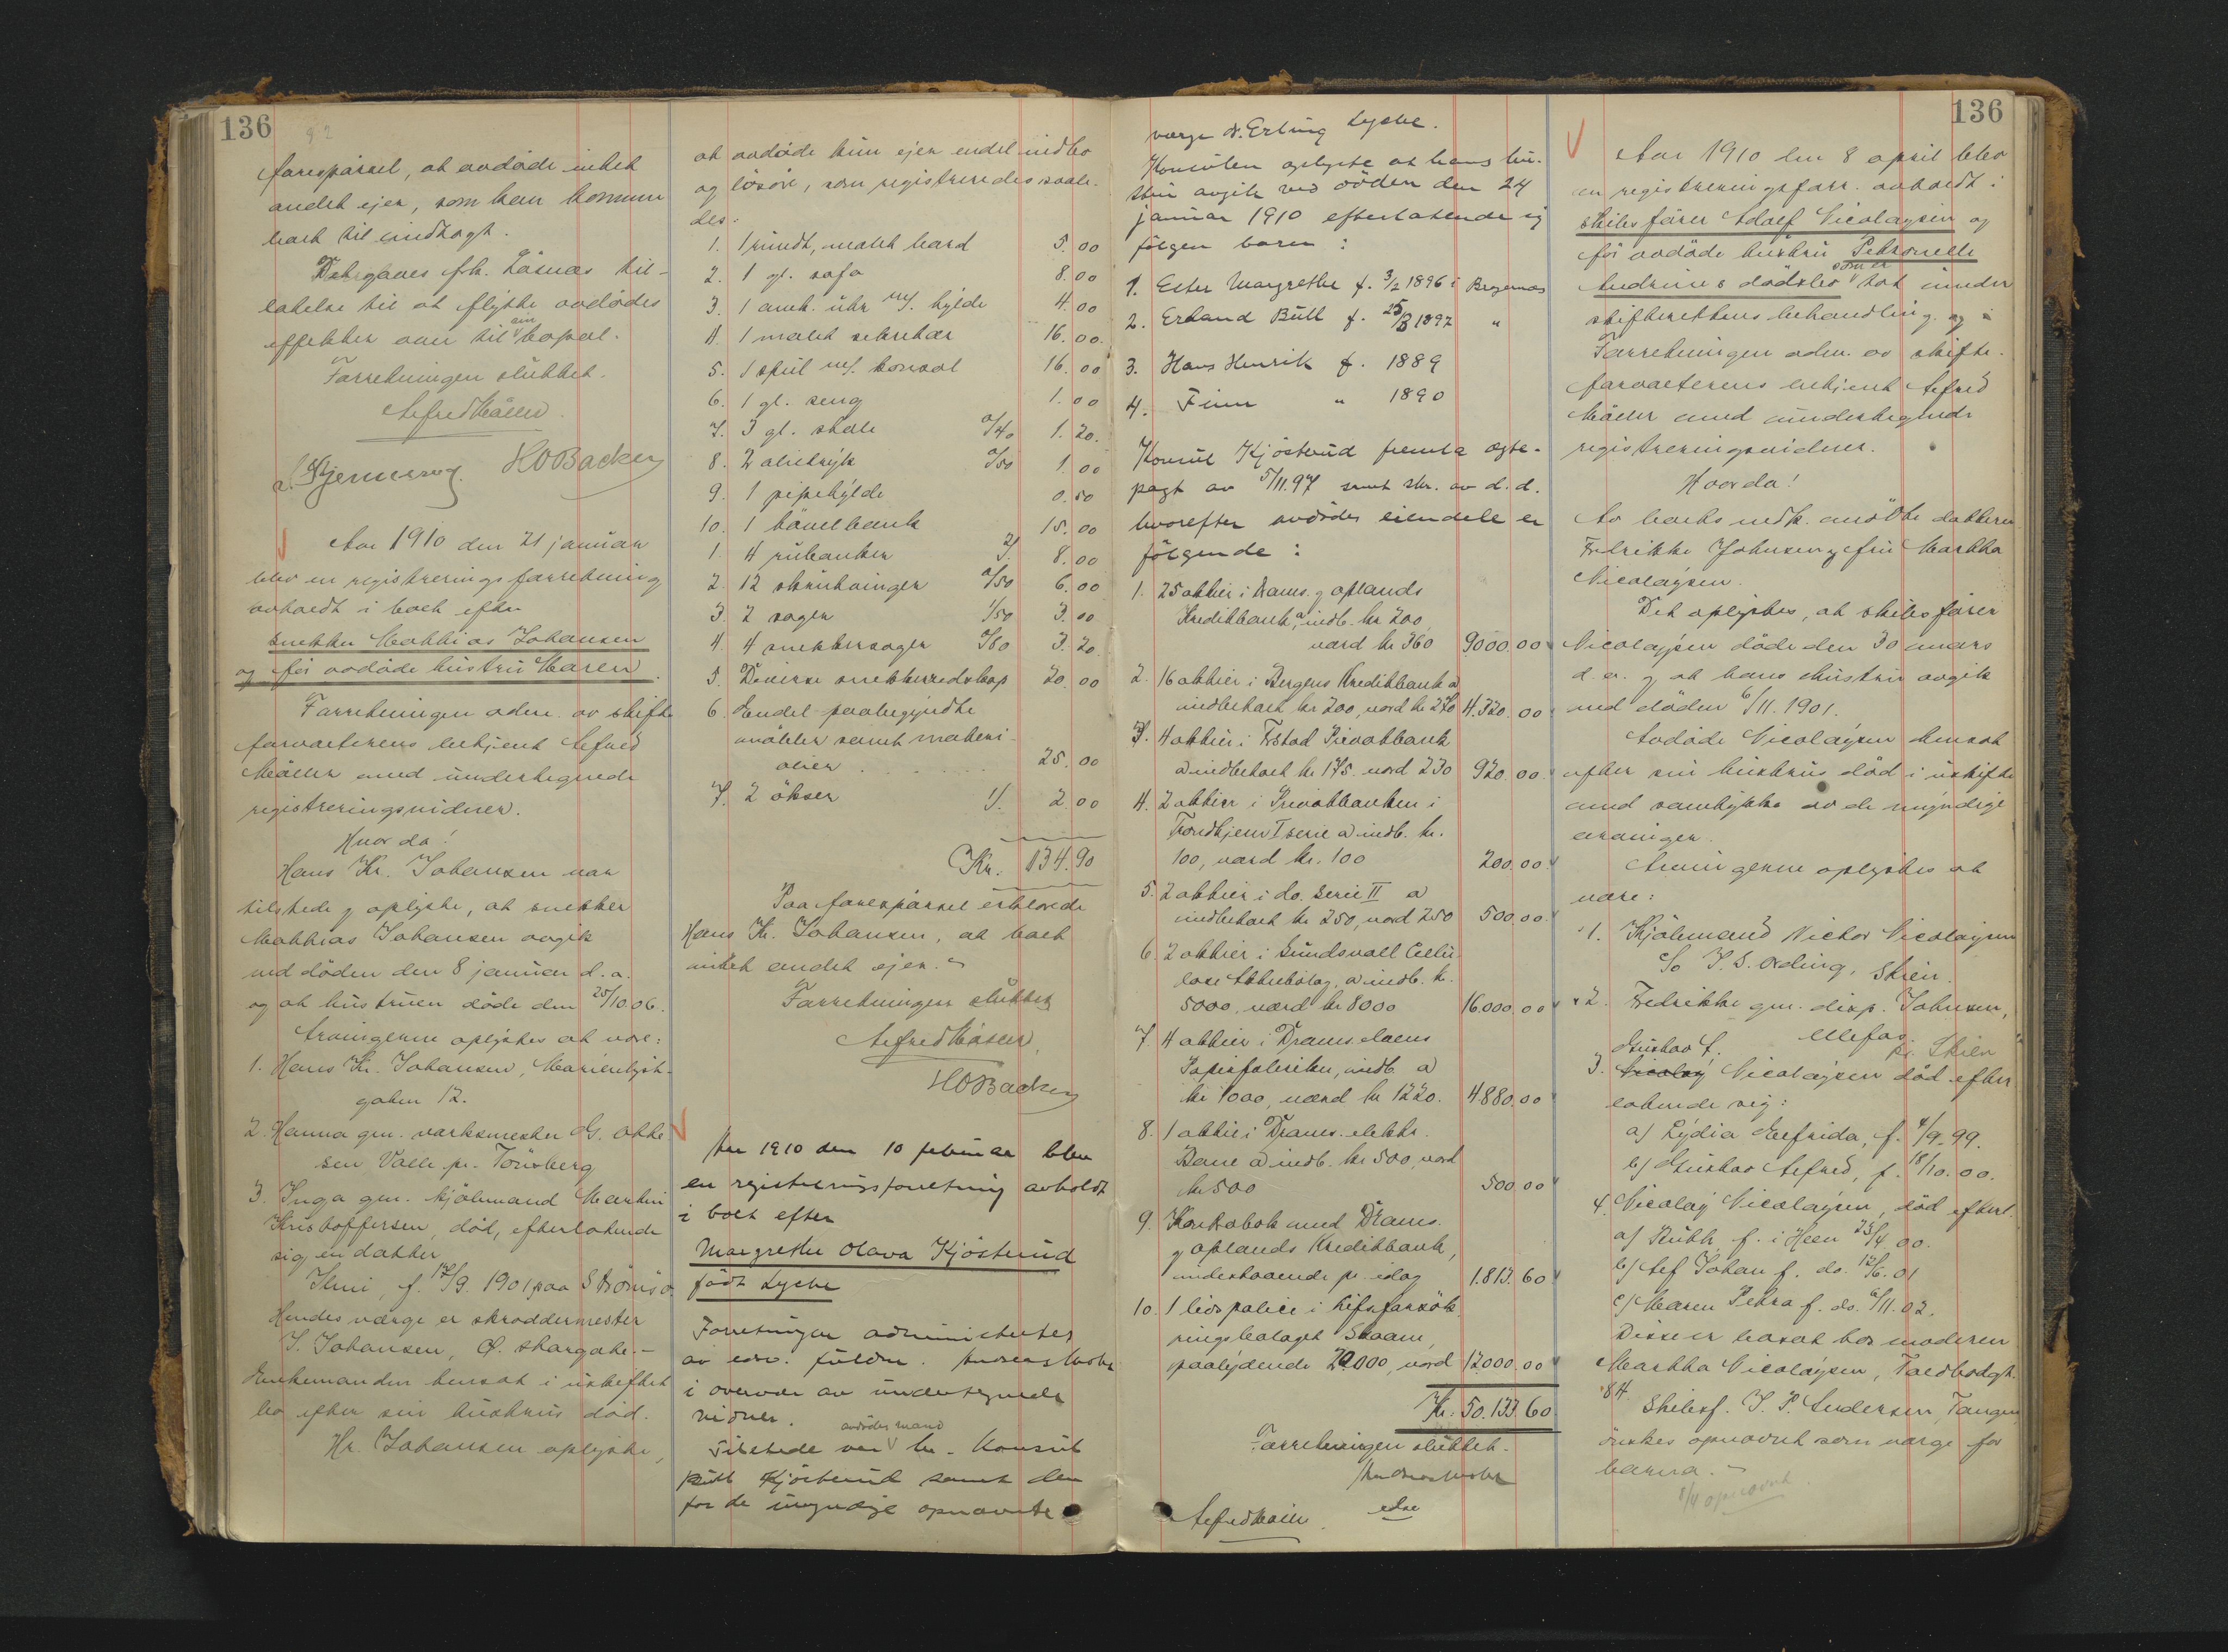 136
forespørsel, at avdøde intet
andet ejer, som kan komme
boet til indtægt.
Det gaves fr. Løsnæs til-
latelse til at flytte avdødes
effekter over til sin bopæl.
Forretningen sluttet.
Alfred Møller
HOBacker
Aar 1910 den 21 januar
blev en registreringsforretning
avholdt i boet efter
snekker Mathias Johansen
og før avdøde hustru Maren.
Forretningen adm. av skifte
forvalterens betjent Alfred
Møller med undertegnede
registreringsvidner.
Hvorda!
Hans Kr. Johansen var
tilstede og oplyste, at snekker
Mathias Johansen avgik
ved døden den 8 januar d.a.
og at hustruen døde den 25/10.06.
Arvingerne oplystes at være:
1. Hans Kr. Johansen, Marienlyst-
gaten 12.
2. Hanna gm. verksmester G. Otte
sen, Valle pr. Tønsberg
3. Inga gm. kjølmand Martin
Kristoffersen, død, efterlatende
sig en datter
f. 17/9. 1901 paa Strømsø.
Hendes værge er skræddermester
J. Johansen, Ø. Storgate.-
Enkemanden hensat i uskiftet
bo efter sin hustrus død.
Hr. Johansen oplyste,
at avdøde kun ejer endel indbo
og løsøre, som registreredes saale-
des:
1. 1 rundt, malet bord 5.00
2. 1 gl. sofa 8.00
3. 1 amk. uhr m/. hylde 4.00
4. 1 malet sekretær 16.00.
5. 1 speil m/. konsol 16.00
6. 1 gl. seng 1.00
7. 3 gl. stole 0/40 1.20.
8. 2 oljetryk 0/50 1.00
9. 1 pipehylde 0.50
10. 1 høvelbenk 15.00
1. 4 rubanker 2/. 8.00
2. 12 skrutvinger 0/50 6.00
3. 2 sager 1/50 3.00
4. 4 snekkersager 0/80 3.20
5. Diverse snekkerredskap 20.00
6. Endel paabegyndte
møbler samt materi-
alier 25.00
7. 2 økser 1/. 2.00
Kr. 134.90
Paa forespørsel erklærede
Hans Kr. Johansen, at boet
intet andet ejer.
Forretningen sluttet
Alfred Møller.
HOBacker
Aar 1910 den 10 februar blev
en registreringsforretning avholdt
i boet efter
Margrethe Olava Kjøsterud
født Lyche
Forretningen administretes
av edsv. fuldm. Andreas
i overvær av undertegnede
vidner.
Tilstede var avdødes mand hr. Konsul
Kjøsterud samt den
for de umyndige opnævnte
136
værge Hr. Erling Lyche.
Konsulen oplyste at hans hu-
stru avgik ved døden den 24
januar 1910 efterlatende sig
følgen barn:
1. Ester Margrethe f. 3/2 1896 i Bragernæs
2. Erland Bull f. 25/8 1897 "
3. Hans Henrik f. 1889
4. Finn " 1890
Konsul Kjøsterud fremla ægte-
pagt av 5/11.97 samt skr. av d.d.
hvorefter avdødes eiendele er
følgende:
1. 25 aktier i Drams. og oplands
Kreditbank, a indb. kr 200,
værd kr 360 9000.00
2. 16 aktier i Bergens Kreditbank a
indbetalt kr 200, værd kr 270 4.320.00
3. 4 aktier i Fr.stad Privatbank
a indbetalt kr 175. værd 230 920.00.
4. 2 aktier i Privatbanken i
Trondhjem I serie a indb. kr.
100, værd kr. 100 200.00
5. 2 aktier i do. Serie II a
indbetalt kr 250, værd 250 500.00.
6. 2 aktier i Sundsvall Cellu
lose Aktiebolag, a indb. kr.
5000, værd kr 8000 16.000.00
7. 4 aktier i Dramselvens
Papirfabriker, indb. a
kr 1000, værd kr 1220. 4880.00
8. 1 aktie i Drams. elektr.
Bane a indb. kr 500, værd
kr 500 500.00
9. Kontrabok med Drams.
og oplands Kreditbank,
indestaaende pr. idag 1.813.60
10. 1 livspolice i Lifsforsäk
ringsbolaget Skaane,
paalydende 20000, værd 12000.00
Kr. 50.133.60
Forretningen sluttet.
edsv
Alfred Møller.
Aar 1910 den 8 april blev
en registreringsforr. avholdt i
skibsfører Adolf Nicolaysen og
før avdøde hustru Petronelle
Andrine's dødsbo som er tat under
skifterettens behandling.
Forretningen adm. av skifte-
forvalterens betjent Alfred
Møller med undertegnede
registreringsvidner.
Hvorda!
Av boets vedk. møtte datteren
Fredrikke Johnsen og fru Martha
Nicolaysen.
Det oplystes, at skibsfører
Nicolaysen døde den 30 mars
d.a. og at hans hustru avgik
ved døden 6/11.1901.
Avdøde Nicolaysen hensat
efter sin hustrus død i uskifte
med samtykke av de myndige
arvinger.
Arvingerne oplystes at
være:
1. Kjølmand Victor Nicolaysen
c/o P. S. Ording, Skien.
2. Fredrikke gm. disp. Johnsen,
Ulefos
pr. Skien
3. Gustav A. Nicolaysen død efter
latende sig:
a) Lydia Elfrida, f. 4/9.99.
b) Gustav Alfred, f. 18/10.00.
4. Nicolay Nicolaysen, død efterl.
a) Ruth f. i Heen 23/4 00.
b) Alf Johan f. do. 12/6.01
c) Maren Petra f. do. 6/11.02.
Disse er bosat hos moderen
Martha Nicolaysen, Toldbodgt.
84
Skibsf. J. P. Andersen, Tangen
ønskes opnævnt som værge for
barna.
8/4 opnævnt.